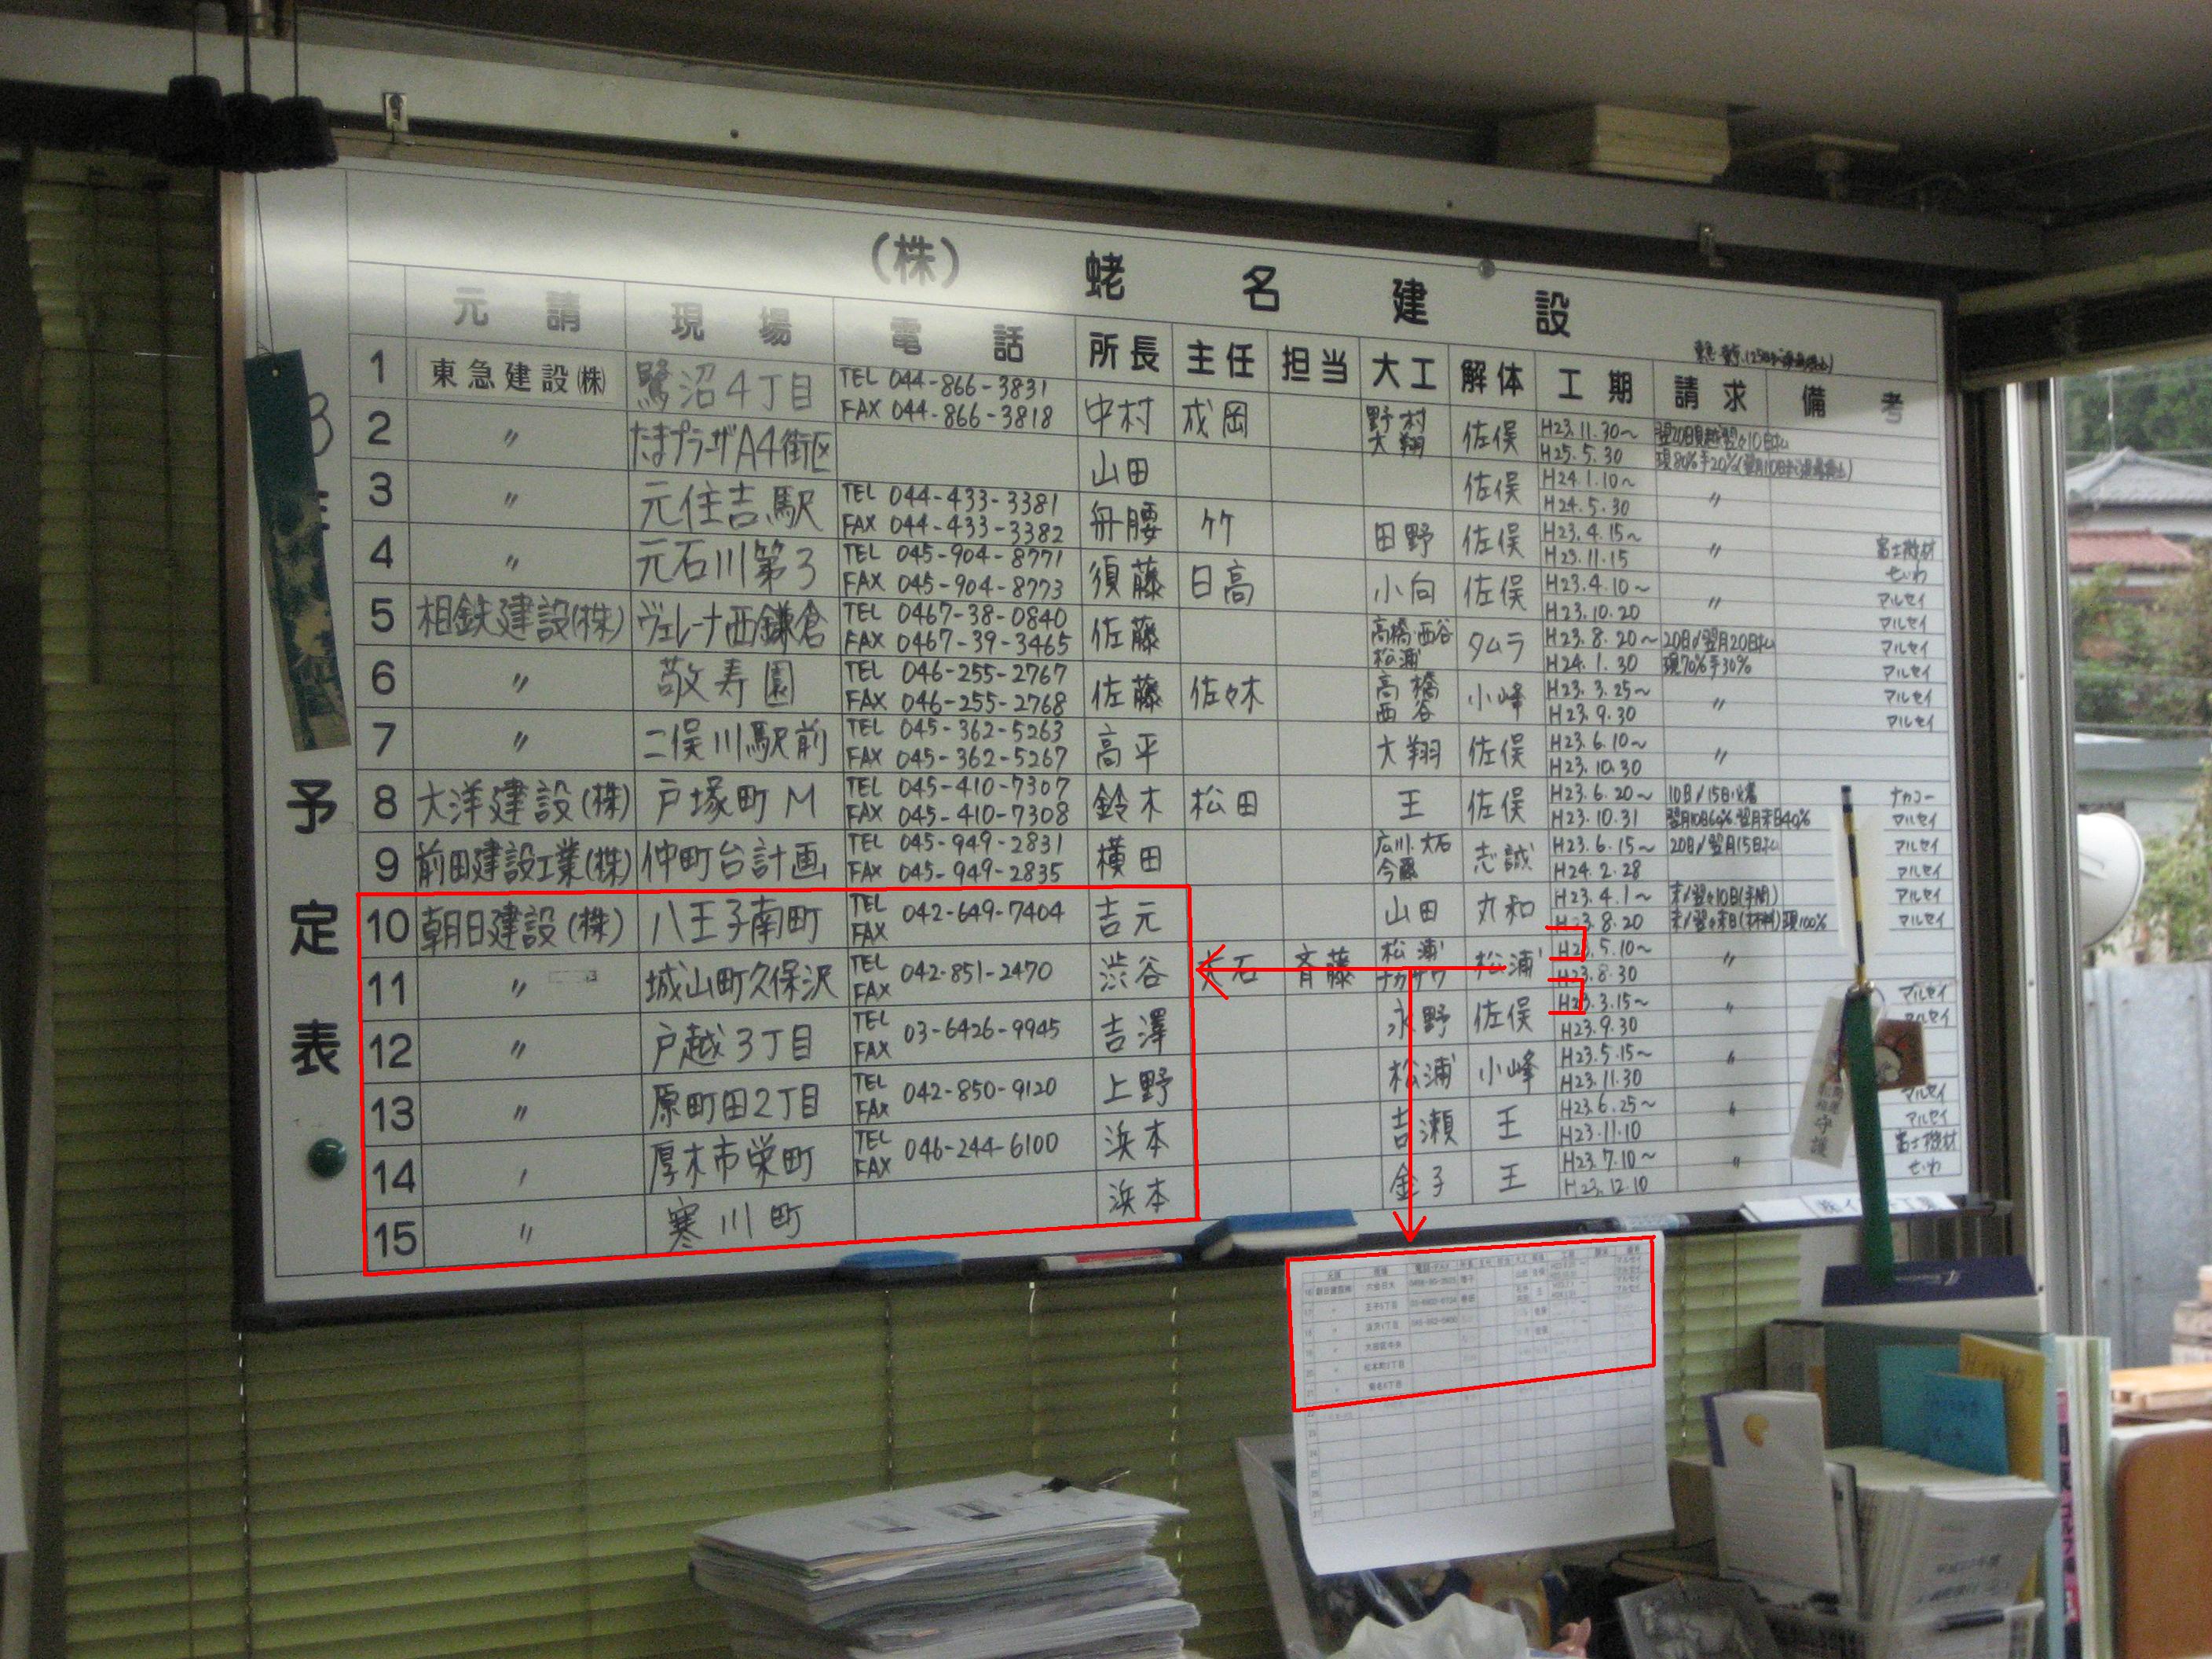 (株) 蛯名建設
予定表
元請 現場 電話 所長 主任 担当 大工 解体 工期 請求 備考
1 東急建設(株) 鷺沼4丁目 TEL 044-866-3831 FAX 044-866-3818 中村 成岡 野村 大翔 佐俣 H23.11.30~ H25.5.30
2 〃 たまプラーザA4街区 山田 佐俣 H24.1.10~ H24.5.30 〃
3 〃 元住吉駅 TEL 044-433-3381 FAX 044-433-3382 舟腰 竹 田野 佐俣 H23.4.15~ H23.11.15 〃 富士機材 せいわ
4 〃 元石川第3 TEL 045-904-8771 FAX 045-904-8773 須藤 日高 小向 佐俣 H23.4.10~ H23.10.20 〃 マルセイ マルセイ
5 相鉄建設(株) ヴェレーナ西鎌倉 TEL 0467-38-0840 FAX 0467-39-3465 佐藤 高橋・西谷 松浦 タムラ H23.8.20~ H24.1.30 20日〆翌月20日払 現70%手30% マルセイ マルセイ
6 〃 敬寿園 TEL 046-255-2767 FAX 046-255-2768 佐藤 佐々木 高橋 西谷 小峰 H23.3.25~ H23.9.30 〃 マルセイ マルセイ
7 〃 二俣川駅前 TEL 045-362-5263 FAX 045-362-5267 高平 大翔 佐俣 H23.6.10~ H23.10.30 〃
8 大洋建設(株) 戸塚町M TEL 045-410-7307 FAX 045-410-7308 鈴木 松田 王 佐俣 H23.6.20~ H23.10.31 10日〆15日必着 翌月10日60%翌月末日40% ナカコー マルセイ
9 前田建設工業(株) 仲町台計画 TEL 045-949-2831 FAX 045-949-2835 横田 広川・大石 志誠 H23.6.15~ H24.2.28 20日〆翌月15日払 マルセイ マルセイ
10 朝日建設(株) 八王子南町 TEL FAX 042-649-7404 吉元 山田 丸和 H23.4.1~ H23.8.20 末〆翌々10日(手間) 末〆翌々末日(材料)現100% マルセイ マルセイ
11 〃 城山町久保沢 TEL FAX 042-851-2470 渋谷 大石 斉藤 松浦 ナカザワ 松浦 H23.5.10~ H23.8.30 〃
12 〃 戸越3丁目 TEL FAX 03-6426-9945 吉澤 永野 佐俣 H23.3.15~ H23.9.30 〃 マルセイ マルセイ
13 〃 原町田2丁目 TEL FAX 042-850-9120 上野 松浦 小峰 H23.5.15~ H23.11.30 〃
14 〃 厚木市栄町 TEL FAX 046-244-6100 浜本 吉瀬 王 H23.6.25~ H23.11.10 〃 マルセイ マルセイ
15 〃 寒川町 浜本 金子 王 H23.7.10~ H23.12.10 〃 富士機材 せいわ